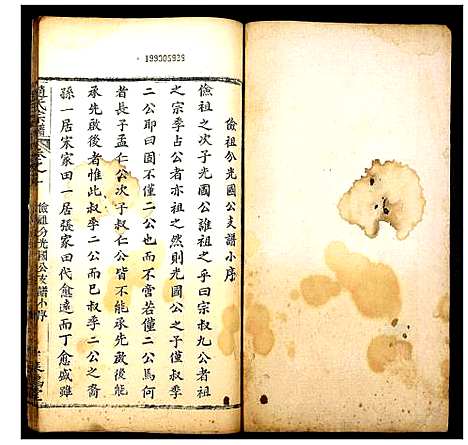 199305939
儉祖分光國公支譜小序
儉祖之次子光國公誰祖之乎曰宗叔九公者祖
之宗季占公者亦祖之然則光國公之子僅叔季
二公耶曰固不僅二公而亦不啻若僅二公焉何
者長子孟仁公次子叔仁公皆不能承先啟後能
承先啟後者惟此叔季二公而已叔季二公之裔
孫一居宋家田一居張家田代愈遠而丁愈盛雖
趙氏宗譜
儉祖分光國公支譜小序